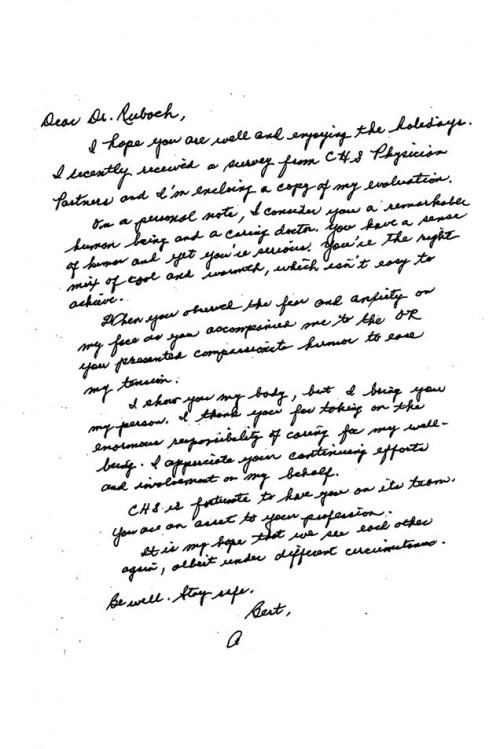 Dear Dr. Ruboch,
I hope you are well and enjoying the holidays.
I recently received a survey from CHS Physician
Partners and I'm enclosing a copy of my evaluation.
On a personal note, I consider you a remarkable
human being and a caring doctor. You have a sense
of humor and yet you're serious. You're the right
mix of cool and warmth, which isn't easy to
achieve.
When you observed the fear and anxiety on
my face as you accompanied me to the OR
you presented compassionate humor to ease
my tension.
I show you my body, but I bring you
my person. I thank you for taking on the
enormous responsibility of caring for my well-
being. I appreciate your continuing efforts
and involvement on my behalf.
CHS is fortunate to have you on its team.
You are an asset to your profession.
It is my hope that we see each other
again, albeit under different circumstances.
Be well. Stay safe.
Best,